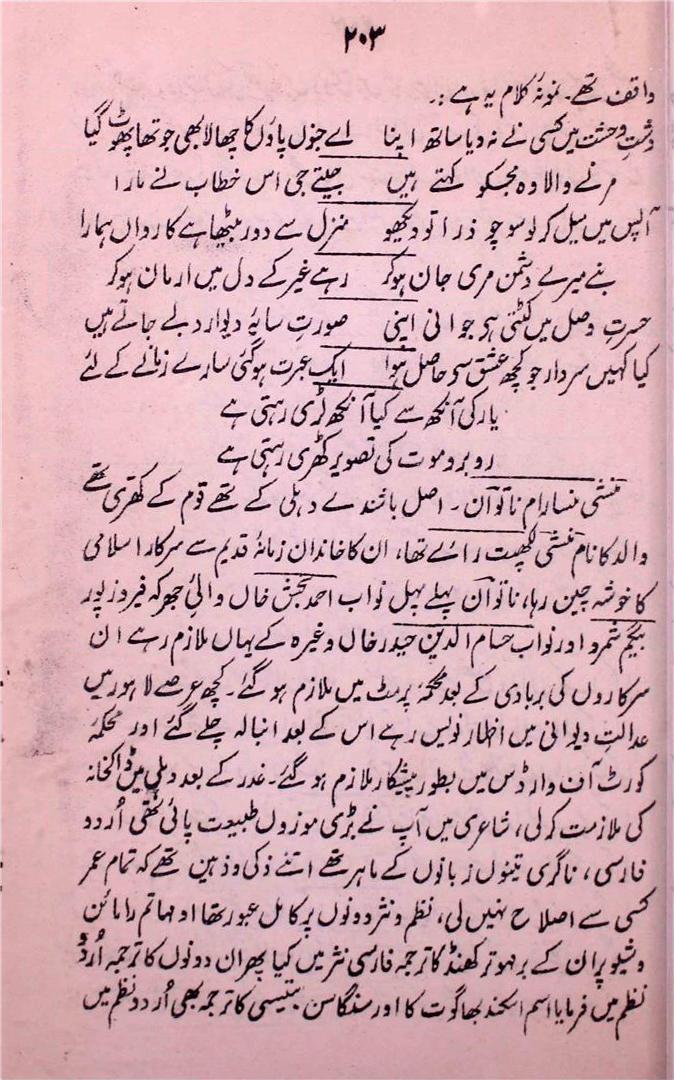 ۲۰۳
واقف تھے۔ نمونۂ کلام یہ ہے :۔
دشتِ وحشت میں کسی نے نہ دیا ساتھ اپنا اے جنوں پاؤں کا چھالا بھی جو تھا پھوٹ گیا
مرنے والا وہ مجھکو کہتے ہیں جیتے جی اس خطاب نے مارا
آپس میں میل کر لو سوچو ذرا تو دیکھو منزل سے دور بیٹھا ہے کارواں ہمارا
بنے میرے دشمن مری جان ہوکر رہے غیر کے دل میں ارمان ہوکر
حسرتِ وصل میں کٹتی ہے جوانی اپنی صورتِ سایۂ دیوار دبے جاتے ہیں
کیا کہیں سردار جو کچھ عشق سے حاصل ہوا ایک عبرت ہوگئی سارے زمانے کے لئے
یار کی آنکھ سے کیا آنکھ لڑی رہتی ہے
روبرو موت کی تصویر کھڑی رہتی ہے
منشی منسارام ناتواں ۔ اصل باشندے دہلی کے تھے قوم کے کھتری تھے
والد کا نام منشی لکھپت رائے تھا، ان کا خاندان زمانۂ قدیم سے سرکار اسلامی
کا خوشہ چین رہا، ناتواں پہلے پہل نواب احمد بخش خاں والئِ جھرکہ فیروزپور
بیگم شمرو اور نواب حسام الدین حیدر خاں وغیرہ کے یہاں ملازم رہے ان
سرکاروں کی بربادی کے بعد محکمۂ پرمٹ میں ملازم ہو گئے۔ کچھ عرصے لاہور میں
عدالتِ دیوانی میں اظہار نویس رہے اس کے بعد انبالہ چلے گئے اور محکمۂ
کورٹ آف وارڈس میں بطور پیشکار ملازم ہو گئے۔ غدر کے بعد دہلی میں ڈاکخانہ
کی ملازمت کرلی، شاعری میں آپ نے بڑی موزوں طبیعت پائی تھی اُردو
فارسی، ناگری تینوں زبانوں کے ماہر تھے اتنے ذکی و ذہین تھے کہ تمام عمر
کسی سے اصلاح نہیں لی، نظم و نثر دونوں پر کامل عبور تھا ادھیاتم رامائن
و شیو پران کے برہموتر کھنڈ کا ترجمہ فارسی نثر میں کیا پھر ان دونوں کا ترجمہ اُردو
نظم میں فرمایا اسم اسکند بھاگوت کا اور سنگاسن بتیسی کا ترجمہ بھی اُردو نظم میں